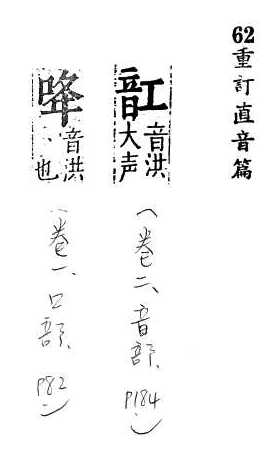 62重訂直音篇
䪦 音洪 大声
(卷二、音部、P184)
音洪 、也
(卷一、口部、P82)